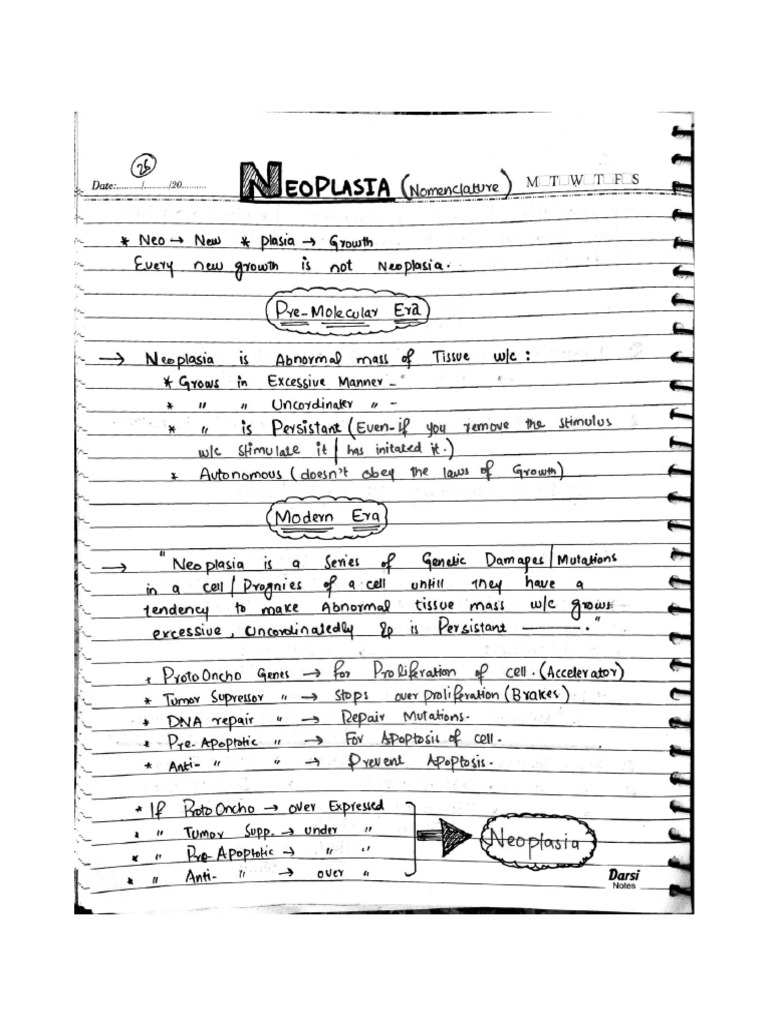 26
Date:........./........./20..........
NEOPLASIA (Nomenclature) M T W T F S
* Neo → New * plasia → Growth
Every new growth is not Neoplasia.
Pre-Molecular Era
→ Neoplasia is Abnormal mass of Tissue w/c :
* Grows in Excessive Manner -
* " " Uncordinater " -
* " is Persistant (Even-if you remove the stimulus
w/c stimulate it / has initated it.)
* Autonomous (doesn't obey the laws of Growth)
Modern Era
→ " Neoplasia is a Series of Genetic Damages / Mutations
in a cell / Prognies of a cell untill They have a
tendency to make Abnormal tissue mass w/c grows
excessive, Uncordinatedly & is Persistant ———. "
* Proto Oncho Genes → For Proliferation of cell. (Accelerator)
* Tumor Supressor " → Stops over proliferation (Brakes)
* DNA repair " → Repair Mutations.
* Pre-Apoptotic " → For Apoptosis of cell.
* Anti- " " → Prevent Apoptosis.
* If Proto Oncho → over Expressed
* " Tumor Supp. → under "
* " Pre-Apoptotic → " "
* " Anti- " → over "
Neoplasia
Darsi
Notes